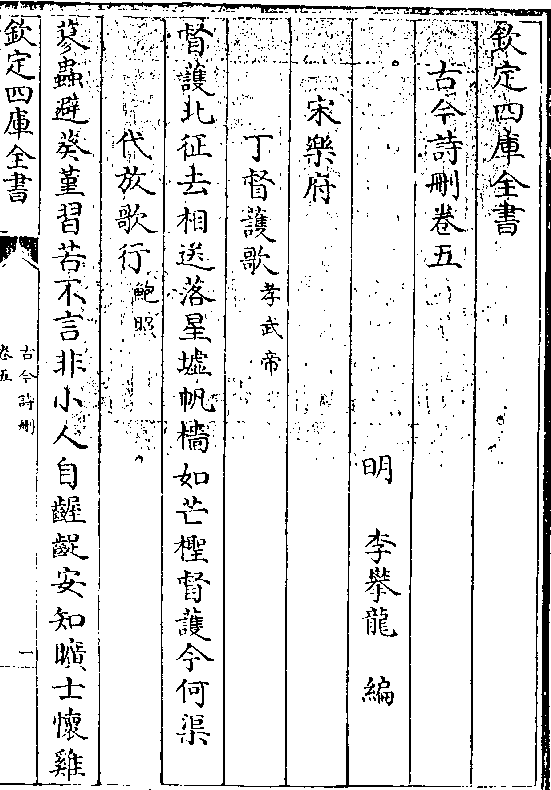 欽定四庫全書
古今詩刪卷五
明　李攀龍　編
宋樂府
丁督護歌 孝武帝
督護北征去相送落星墟帆檣如芒檉督護今何渠
代放歌行 鮑照
蓼蟲避葵堇習苦不言非小人自齷齪安知曠士懷雞
欽定四庫全書
古今詩刪
卷五
一